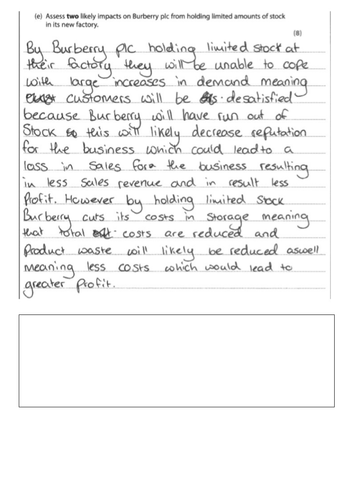 (e) Assess two likely impacts on Burberry plc from holding limited amounts of stock
in its new factory.
(8)
By Burberry plc holding limited stock at
their factory they will be unable to cope
with large increases in demand meaning
customers will be desatisfied
because Burberry will have run out of
Stock so this will likely decrease reputation
for the business which could lead to a
loss in sales for the business resulting
in less sales revenue and in result less
Profit. However by holding limited stock
Burberry cuts its costs in storage meaning
that total costs are reduced and
Product waste will likely be reduced aswell
meaning less costs which would lead to
greater Profit.